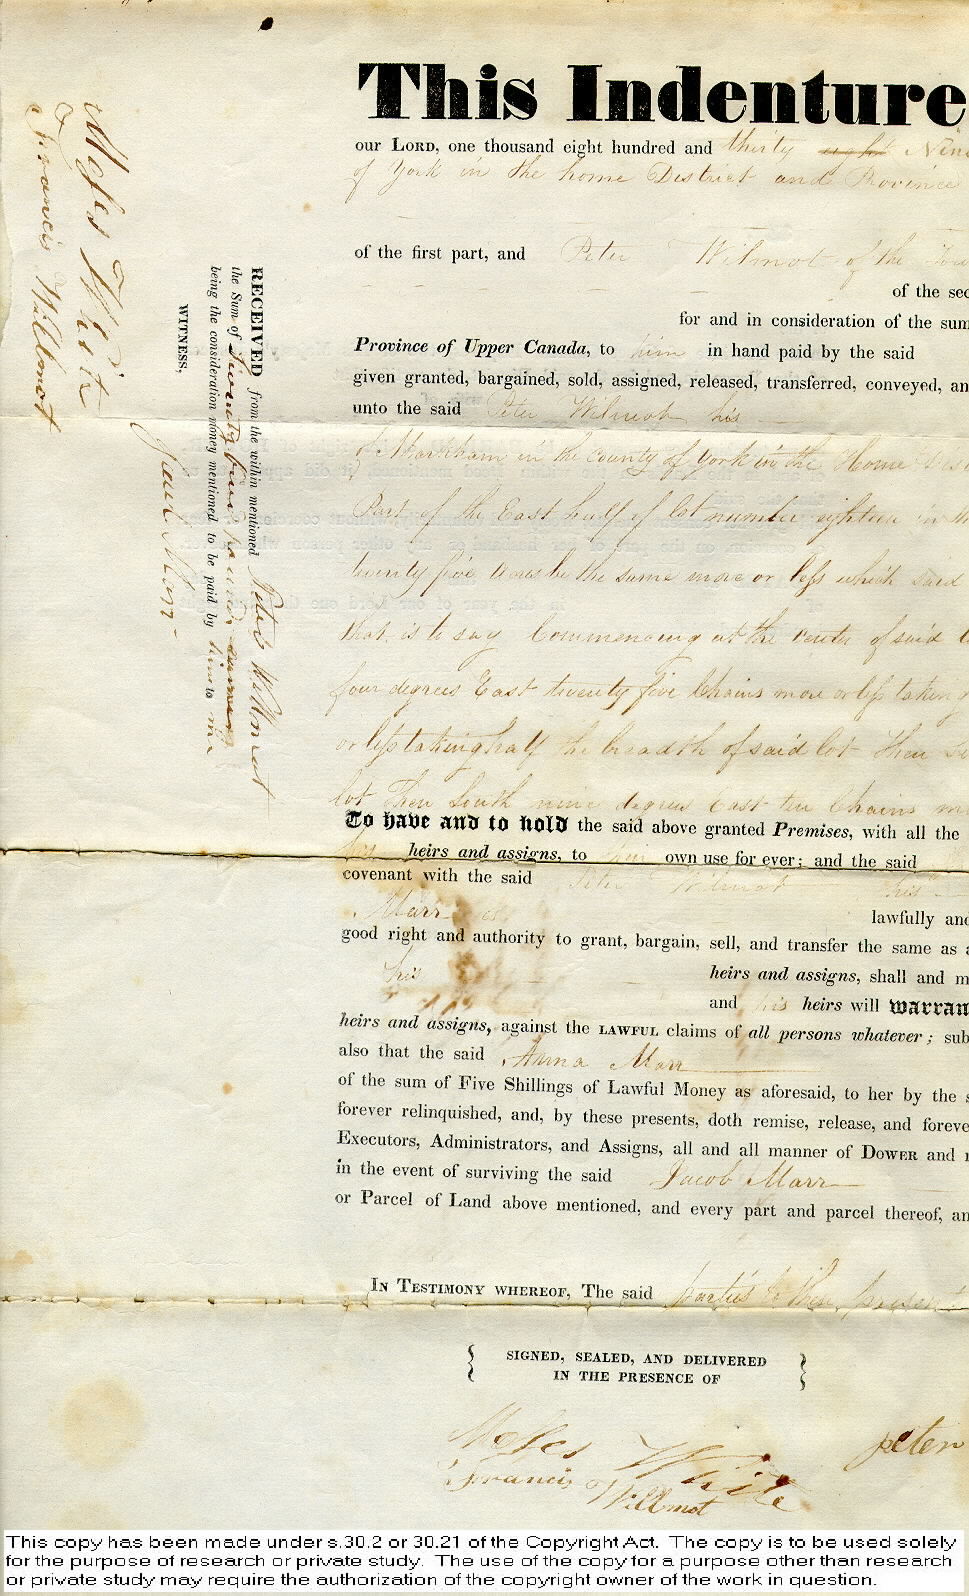 This Indenture
our LORD, one thousand eight hundred and thirty eight Nine
of York in the home District and Province
of the first part, and Peter Wilmot of the
of the sec
for and in consideration of the sum
Province of Upper Canada, to him in hand paid by the said
given granted, bargained, sold, assigned, released, transferred, conveyed, an
unto the said Peter Wilmot his
of Markham in the County of York in the Home Dist
Part of the East half of lot number eighteen in th
twenty five acres be the same more or less which said
that is to say Commencing at the center of said
four degrees East twenty five Chains more or less taking
or less taking half the breadth of said lot then
lot then South nine degrees East ten Chains m
To have and to hold the said above granted Premises, with all the
heirs and assigns, to their own use for ever; and the said
covenant with the said Peter Wilmot his
Marr lawfully and
good right and authority to grant, bargain, sell, and transfer the same as a
his heirs and assigns, shall and m
and his heirs will warran
heirs and assigns, against the LAWFUL claims of all persons whatever; sub
also that the said Anna Marr
of the sum of Five Shillings of Lawful Money as aforesaid, to her by the s
forever relinquished, and, by these presents, doth remise, release, and foreve
Executors, Administrators, and Assigns, all and all manner of DOWER and
in the event of surviving the said Jacob Marr
or Parcel of Land above mentioned, and every part and parcel thereof, an
IN TESTIMONY WHEREOF, The said parties to these presents
SIGNED, SEALED, AND DELIVERED
IN THE PRESENCE OF
Moses White
Francis Willmot
peter
RECEIVED from the within mentioned Peter Willmot
the Sum of Twenty five pounds
being the consideration money mentioned to be paid by him to me
WITNESS,
Jacob Marr
Moses White
Francis Willmot
This copy has been made under s.30.2 or 30.21 of the Copyright Act. The copy is to be used solely
for the purpose of research or private study. The use of the copy for a purpose other than research
or private study may require the authorization of the copyright owner of the work in question.